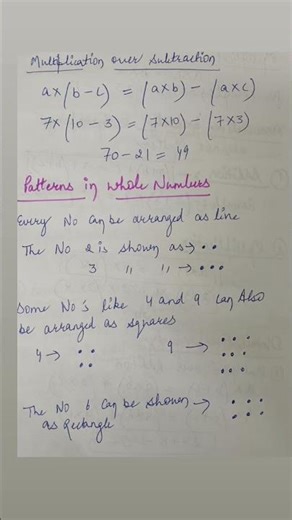 Multiplication over subtraction
a×(b-c) = (a×b) - (a×c)
7×(10-3) = (7×10) - (7×3)
70-21 = 49
Patterns in whole Numbers
Every No can be arranged as line
The No 2 is shown as→ ••
3 " " → •••
Some No's like 4 and 9 can Also
be arranged as squares
4→ 9 →
The No 6 can be shown →
as Rectangle